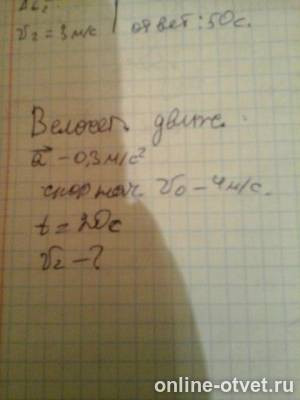 v₂ = 3 м/с
ответ: 50 с.
Велосип. движ.
a⃗ - 0,3 м/с²
скор нач. v₀ - 4 м/с.
t = 20 с
v₂ - ?
online-otvet.ru